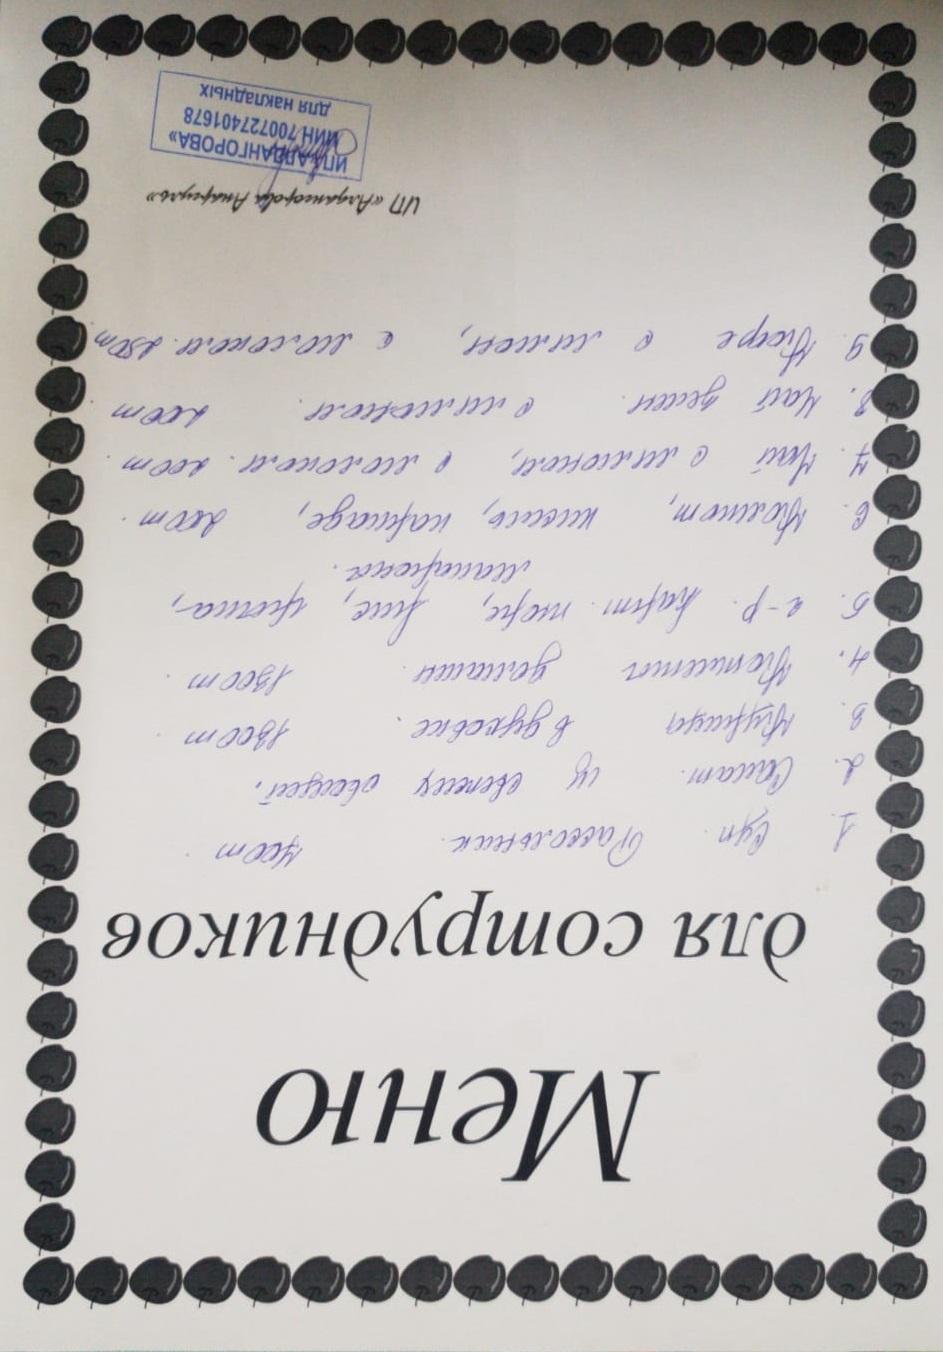 Меню
для сотрудников
1. Суп. Рассольник. 400т.
2. Салат. из свежих овощей.
3. Курица в духовке. 1300т.
4. Котлета домашн. 1300т.
5. г-р. Карт. пюре, рис, гречка,
макароны.
6. Компот, кисель, каркаде, 200т.
7. Чай с лимоном, с молоком. 200т.
8. Чай зелен. с лимоном. 200т
9. Кофе с лимон, с молоком. 250т.
ИП «Алдангорова Анаргуль»
ИП «АЛДАНГОРОВА»
ИИН 700727401678
для накладных